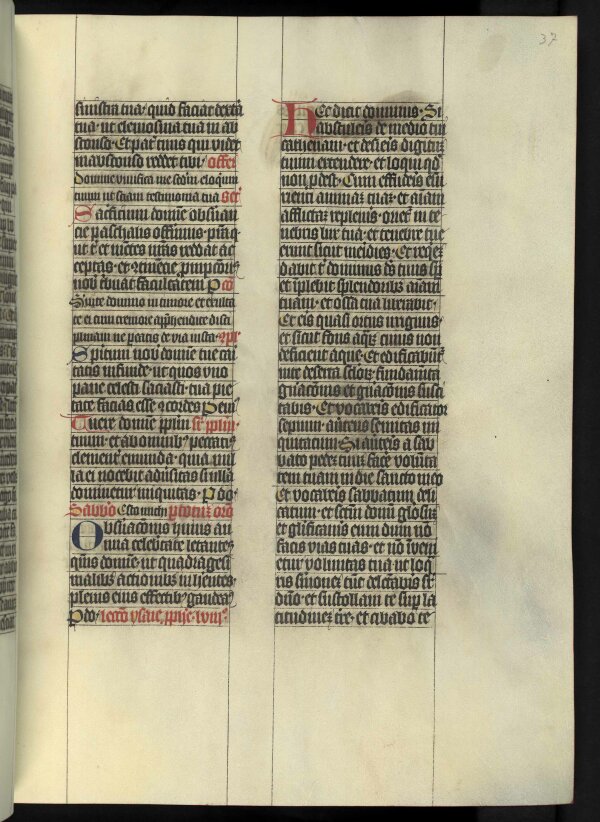 37
sinistra tua· quid faciat dextera
tua· ut elemosina tua in ab
scondito· Et pater tuus qui videt
in abscondito reddet tibi· offert
Domine vivifica me secundum eloquium
tuum ut sciam testimonia tua· secr
Sacrificium domine observan
tie paschalis offerimus· presta quesumus
ut tibi et mentes nostras reddat ac
ceptas· et continentie promptioris
nobis tribuat facultatem· per· co
Servite domino in timore et exultate
ei cum tremore apprehendite disci
plinam ne pereatis de via iusta·
Spiritum nobis domine tue cari
tatis infunde· ut quos uno
pane celesti saciasti· tua pie
tate facias esse concordes·
Tuere domine populum super populum
tuum· et ab omnibus peccatis
clementer emunda· quia nul
la ei nocebit adversitas si nulla
dominetur iniquitas· per do·
Sabbato
Observationis huius an
nua celebritate letantes
quesumus domine· ut quadragesi
malibus actionibus inherentes
plenius eius effectibus gaudeamus
per do· lectio ysaie prophete· lviii·
Hec dicit dominus· Si
abstuleris de medio tui
cathenam· et desieris digitum
tuum extendere· et loqui quod
non prodest· Cum effuderis esu
rienti animam tuam· et animam
afflictam repleveris· orietur in te
nebris lux tua· et tenebre tue
erunt sicut meridies· Et requiem
dabit tibi dominus deus tuus semper
et implebit splendoribus animam
tuam· et ossa tua liberabit·
Et eris quasi ortus irriguus·
et sicut fons aquarum cuius non
deficient aque· Et edificabuntur
in te deserta seculorum· fundamenta
generationis et generationis susci
tabis· Et vocaberis edificator
sepium· avertens semitas ini
quitatum· Si averteris a sab
bato pedem tuum· facere volunta
tem tuam in die sancto meo
Et vocaveris sabbatum deli
catum· et sanctum domini gloriosum
et glorificaveris eum dum non
facis vias tuas· et non inveni
etur voluntas tua ut loqua
ris sermonem· tunc delectaberis super
domino· et sustollam te super al
titudinem terre· et cibabo te